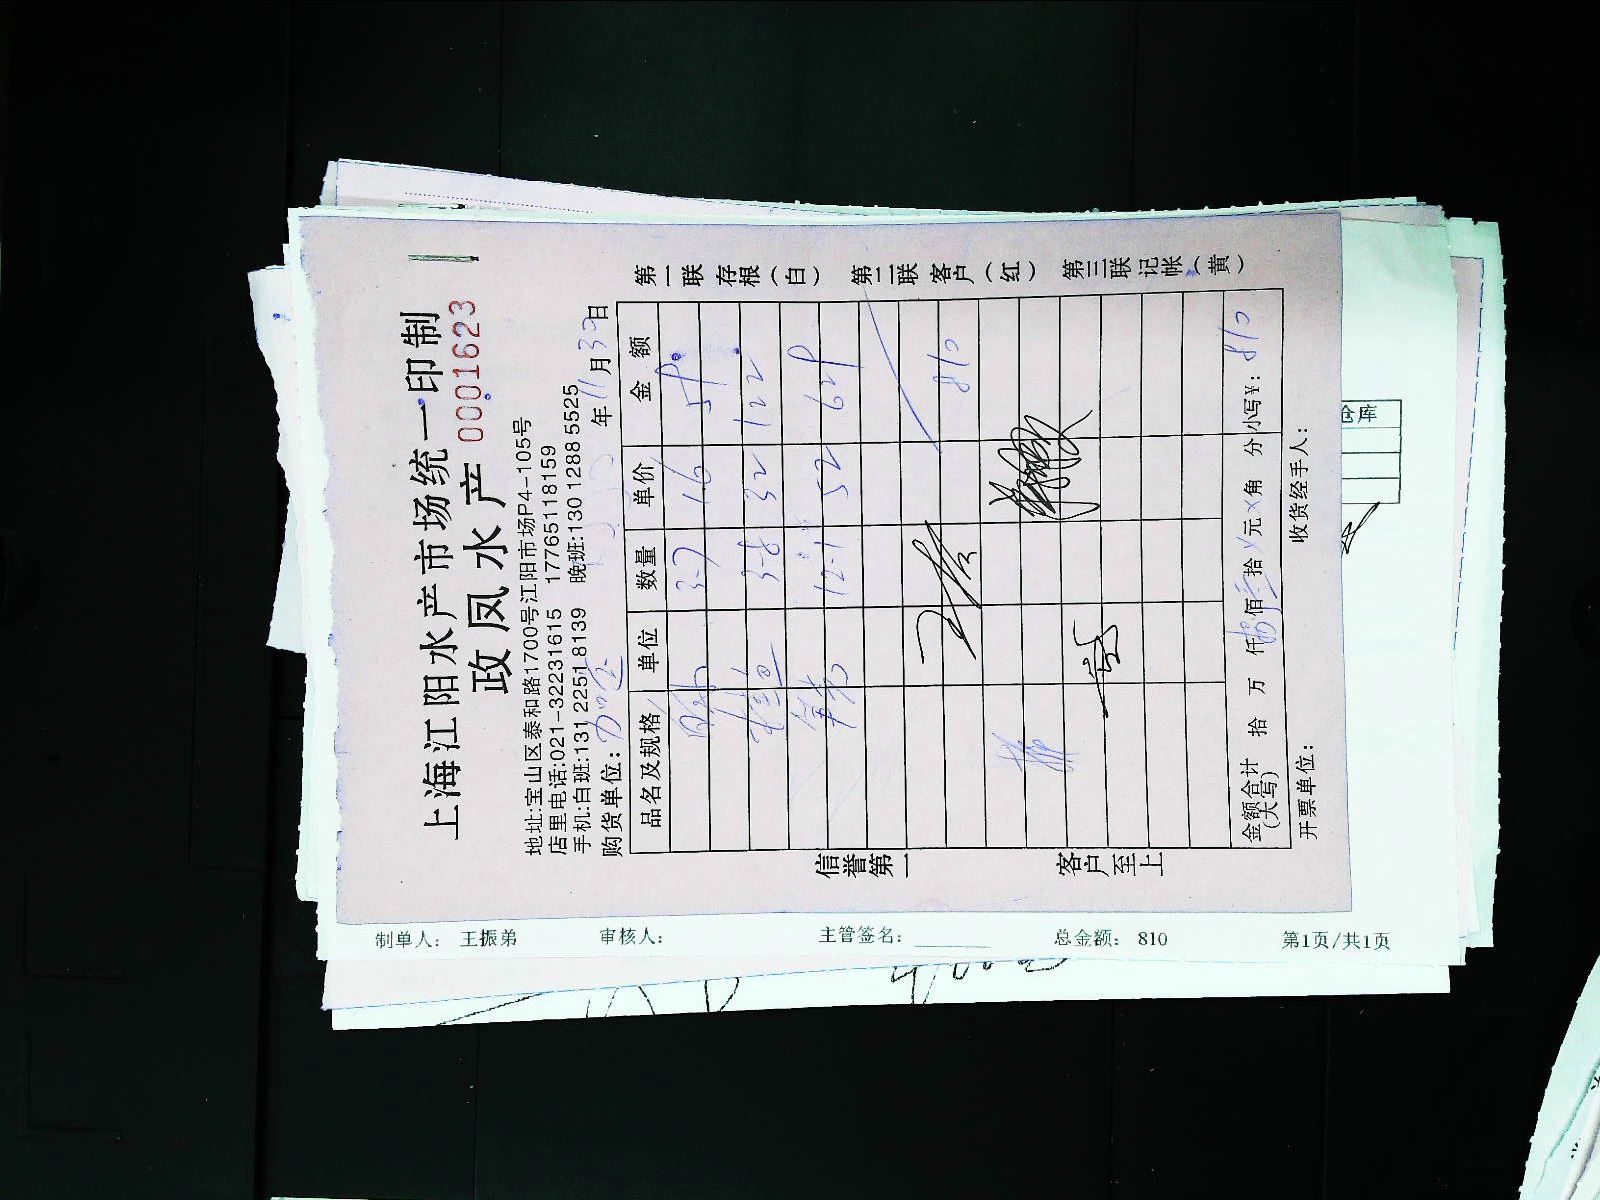 上海江阳水产市场统一印制
政凤水产 0001623
地址:宝山区泰和路1700号江阳市场P4-105号
店里电话:021-32231615 17765118159
手机:白班:131 2251 8139 晚班:130 1288 5525
购货单位: 年11月30日
品名及规格 单位 数量 单价 金额
3-7 16 59
3-8 32 122
12-1 52 629
810
金额合计(大写) 拾 万 仟 佰 拾 元 角 分 小写¥: 810
开票单位: 收货经手人:
信誉第一 客户至上
第一联 存根(白) 第二联 客户(红) 第三联 记帐(黄)
制单人: 王振弟 审核人: 主管签名: 总金额: 810 第1页/共1页
仓库